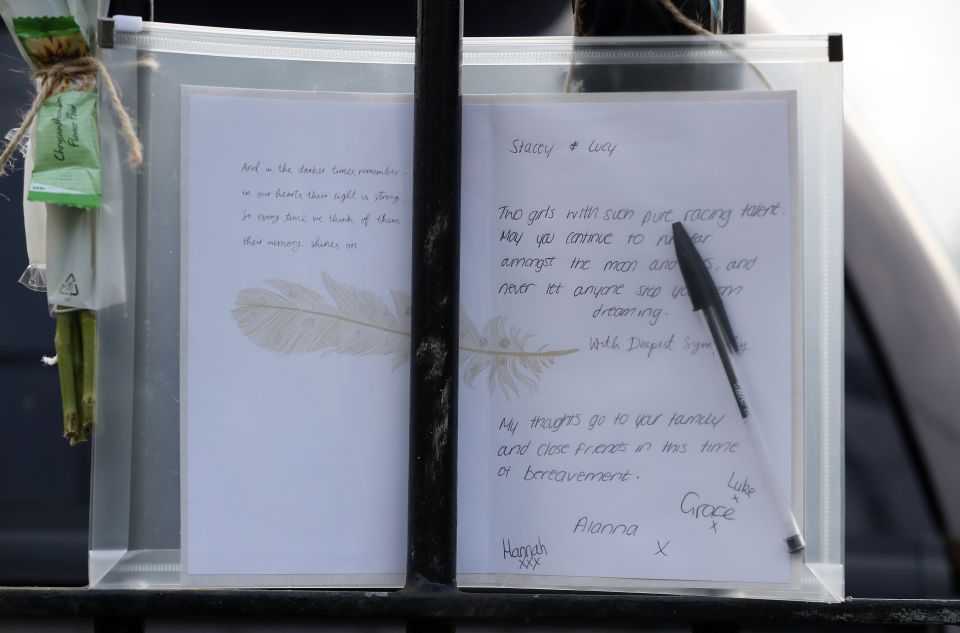 Chrysanthemum
Flower Food
And in the darker times, remember -
in our hearts their light is strong,
So every time we think of them
their memory shines on.
Stacey & Lucy
Two girls with such pure racing talent.
May you continue to run far
amongst the moon and, and
never let anyone stop you
dreaming.
With Deepest
My thoughts go to your family
and close friends in this time
of bereavement.
Luke
x
Grace
x
Alanna
x
Hannah
xxx